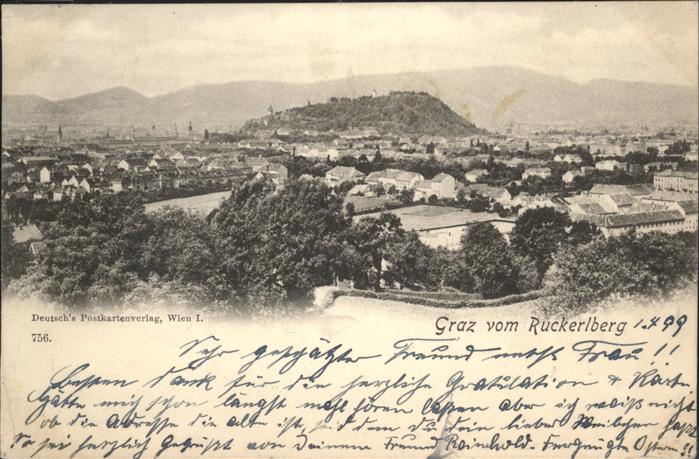 Deutsch's Postkartenverlag, Wien I.
756.
Graz vom Rückerlberg 1.4.99
Sehr geschätzter Freund nebst Frau!!
Besten Dank für die herzliche Gratulation & Karte
hätte mich schon längst mehl hören lassen aber ich weiß nicht
ob die Adresse die alte ist, seit dem du dein liebes Weibchen hast
So sei herzlich gegrüßt von Deinem Freund Reinhold. Vergnügte Ostern!!